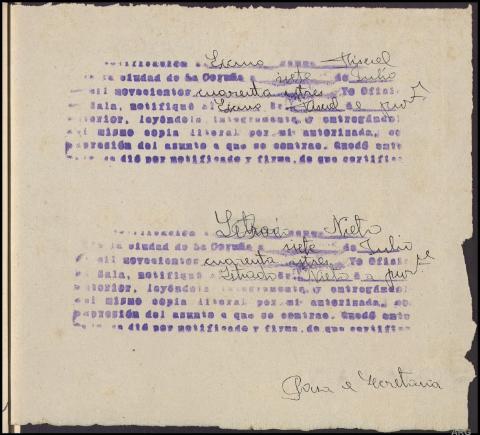 Notificación a Excmo Miscal
En la ciudad de La Coruña a siete de Julio
de mil novecientos cuarenta y tres, Yo Oficial
de Sala, notifiqué al Excmo Sr.
anterior, leyéndole íntegramente y entregándole
del mismo copia literal por mi autorizada, con
expresión del asunto a que se contrae. Quedó ente
dió por notificado y firma, de que certifico
Notificación a Letrado Nieto
En la ciudad de La Coruña a siete de Julio
de mil novecientos cuarenta y tres, Yo Oficial
de Sala, notifiqué al Letrado Sr. Nieto
anterior, leyéndole íntegramente y entregándole
del mismo copia literal por mi autorizada, con
expresión del asunto a que se contrae. Quedó ente
dió por notificado y firma, de que certifico
Pasa a Secretaria